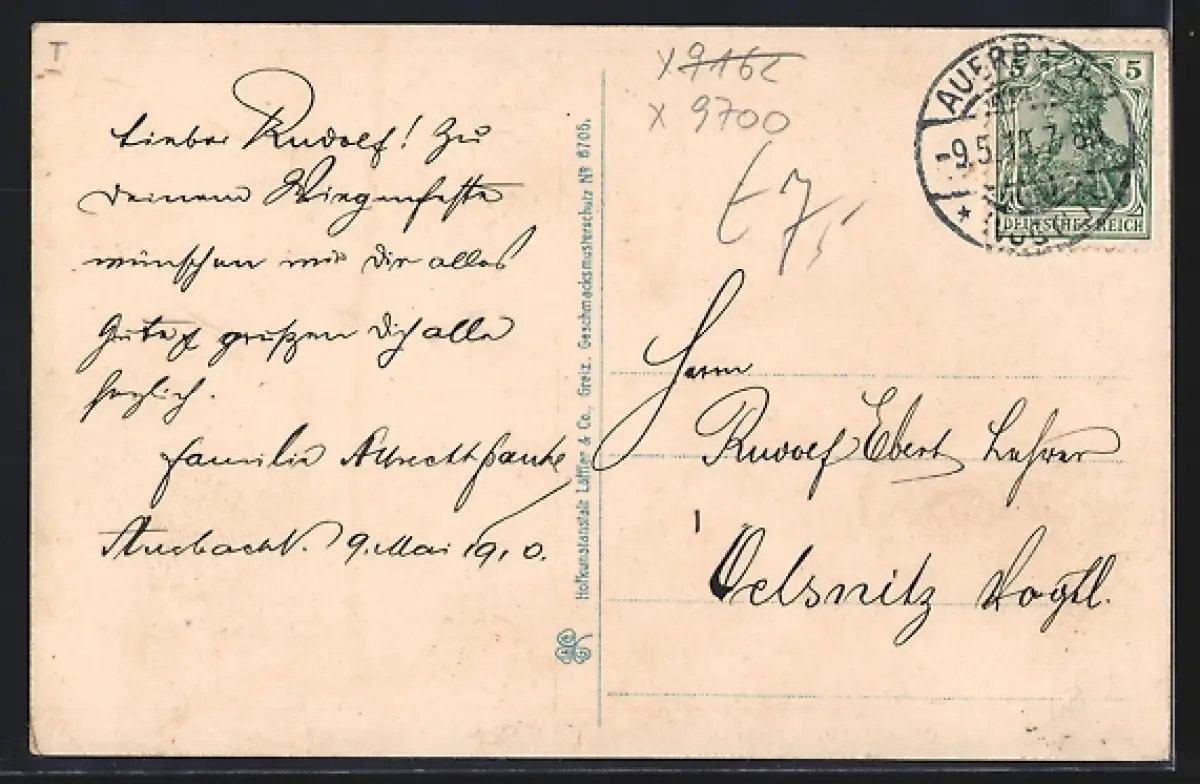 T
Lieber Rudolf! Zu
Deinem Wiegenfeste
wünschen wir Dir alles
Gute & grüßen Dich alle
herzlich.
Familie Albrecht
9. Mai 1910.
Hofkunstanstalt Löffler & Co., Greiz. Geschmacksmusterschutz No 6705.
X 9162
X 9700
£7,-
AUERB
-9.5. 10. 7-8
DEUTSCHES REICH
5
5
Herrn
Rudolf Ebert Lehrer
Oelsnitz Vogtl.